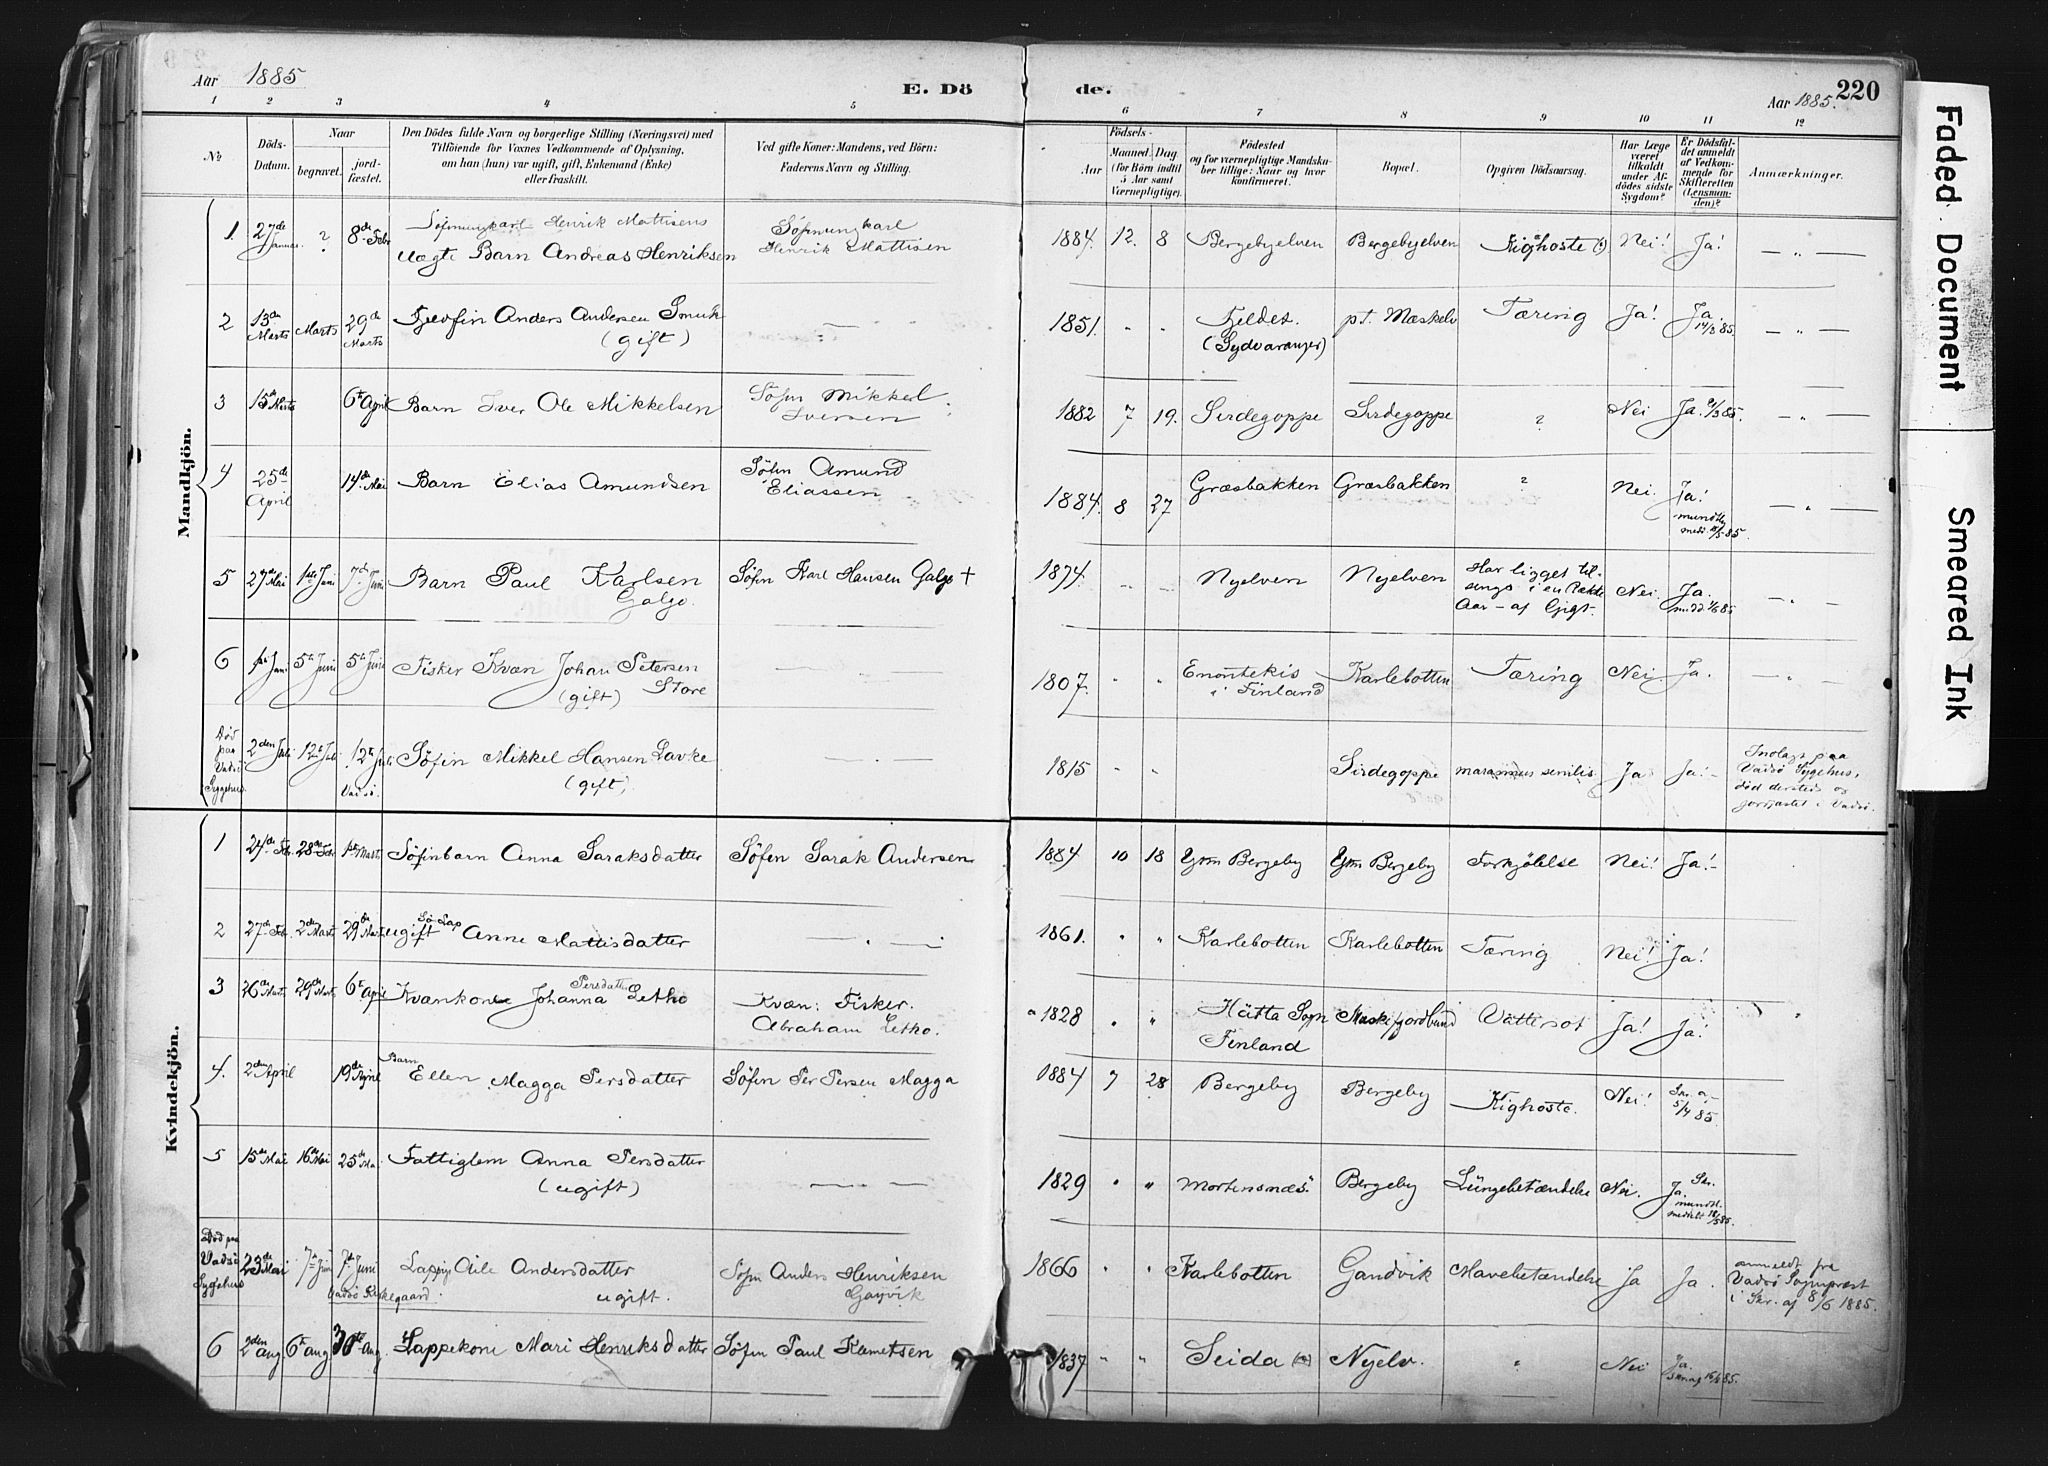 Aar 1885
E. Dö
de.
Aar 1885.
220
1 2 3 4 5 6 7 8 9 10 11 12
No
Döds-
Datum.
Naar
begravet.
jord-
fæstet.
Den Dödes fulde Navn og borgerlige Stilling (Næringsvei) med
Tilföiende for Voxnes Vedkommende af Oplysning,
om han (hun) var ugift, gift, Enkemand (Enke)
eller fraskilt.
Ved gifte Koner: Mandens, ved Börn:
Faderens Navn og Stilling.
Födsels-
Aar
Maaned. Dag
(for Börn indtil
5 Aar samt
Værnepligtige).
Födested
og for værnepligtige Mandska-
ber tillige: Naar og hvor
konfirmeret.
Bopæl.
Opgiven Dödsaarsag.
Har Læge
været
tilkaldt
under Af-
dödes sidste
Sygdom?
Er Dödsfal-
det anmeldt
af Vedkom-
mende for
Skifteretten
(Lensman-
den)?
Anmærkninger.
Mandkjön.
1. 27de Januar. ? 8de Febr Søfinungkarl Henrik Mattisens
uægte Barn Andreas Henriksen
Søfinungkarl
Henrik Mattisen
1884. 12. 8 Bergebyelven Bergebyelven Kighoste (?) Nei! Ja! — „ —
2 13de Marts Marts 29de Marts Fjeldfin Anders Andersen Smuk
(gift)
1851. " " Fjeldet.
(Sydvaranger)
pt. Mæskelv Tæring Ja! Ja.
14/3 85. — „ —
3 15de Marts 6te April Barn Iver Ole Mikkelsen
Søfin Mikkel
Iversen
1882 7 19. Sirdegoppe Sirdegoppe ? Nei Ja. 2/3 85. — „ —
4 25de April 14de Mai Barn Elias Amundsen
Søfin Amund
Eliassen
1884. 8 27 Græsbakken Græsbakken ? Nei. Ja!
— „ —
5 27de Mai 1ste Juni 7de Juni Barn Paul Karlsen
Galgo.
Søfin Karl Hansen Galgo +
1874. Nyelven Nyelven Har ligget til-
sengs i en Række
Aar — af Gigt.
Nei. Ja.
— „ —
6 1ste Juni 5te Juni 5te Juni Fisker Kvæn Johan Petersen
Store
(gift)
1807. " " Enontekis
i Finland
Karlebotten Tæring Nei. Ja. — „ —
Død
paa
Vadsø
Sygehus
2den Juli 12te Juli 12te Juli
Vadsø.
Søfin Mikkel Hansen Lavke
(gift)
1815 " " Sirdegoppe marasmus senilis. Ja Ja! -
Indlagt paa
Vadsø Sygehus,
død dersteds og
jordfæstet i Vadsø.
Kvindekjön.
1 24de Febr. 28de Febr 1ste Marts Søfinbarn Anna Saraksdatter
Søfin Sarak Andersen
1884 10 18 Ytre Bergeby Ytre Bergeby Forkjølelse Nei! Ja! -
2 27de Febr. 2den Marts 29de Marts ugift Sø Lap Anne Mattisdatter
1861. " " Karlebotten Karlebotten Tæring Nei! Ja!
3 26de Marts 29de Marts 6te April Kvænkone Johanna Persdatter Letho
Kvæn: Fisker.
Abraham Letho.
1828 " " Hätta Sogn
Finland
Mæskefjordbund Vattersot Ja! Ja!
4. 2den April 19de April Barn
Ellen Magga Persdatter
Søfin Per Persen Magga
1884 7 28 Bergeby Bergeby Kighoste. Nei! Skr. af
5/4 85.
5 15de Mai 16de Mai 25de Mai Fattiglem Anna Persdatter
(ugift)
1829 " " Mortensnæs. Bergeby Lungebetændelse Nei. Skr.
Ja.
mundtl.
18/5 85.
Død paa
Vadsø
Sygehus
23de Mai 7de Juni 7de Juni
Vadsø Kirkegaard.
Lappige Aile Andersdatter
ugift.
Søfin Anders Henriksen
1866 " " Karlebotten Gandvik Mavebetændelse Ja Ja.
anmeldt fra
Vadsø Sognepræst
i Skr. af 8/6 1885.
6 2den Aug. 6te Aug 30te Aug. Lappekone Mari Henriksdatter
Søfin Paul Klemetsen
1837 " " Seida Nyelv. " Nei Ja.
Faded Document
Smeared Ink